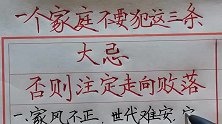 一个家庭不要犯这三条
大忌
否则注定走向败落
一、家风不正，世代难安，它